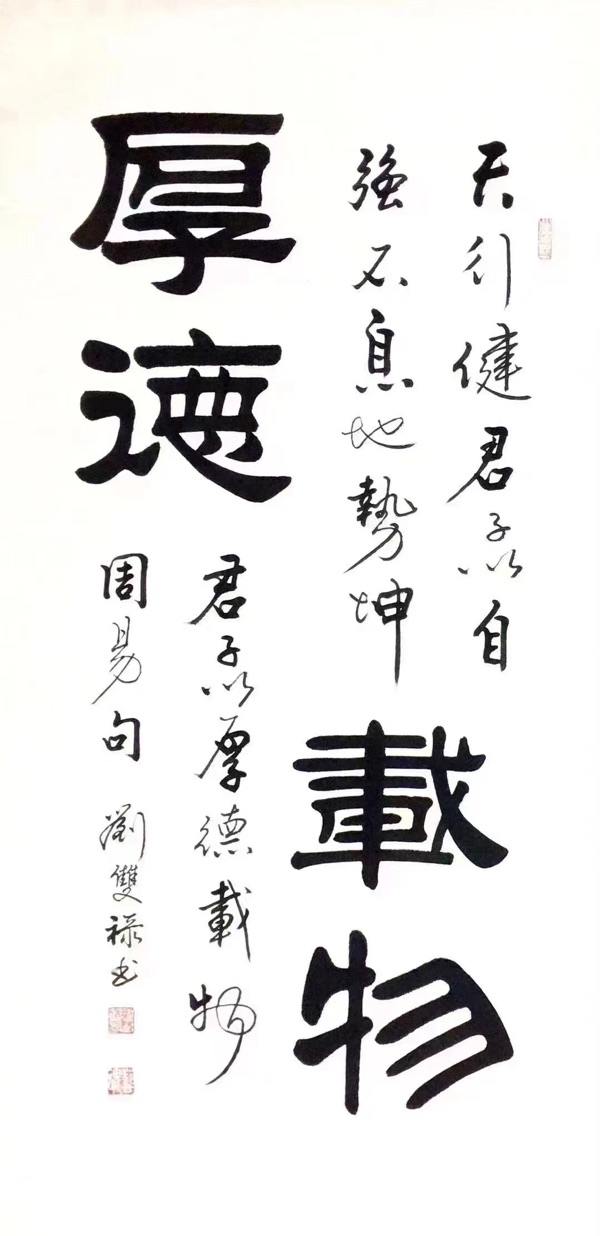 厚德
載物
天行健君子以自
強不息地勢坤
君子以厚德載物
周易句 劉雙禄书